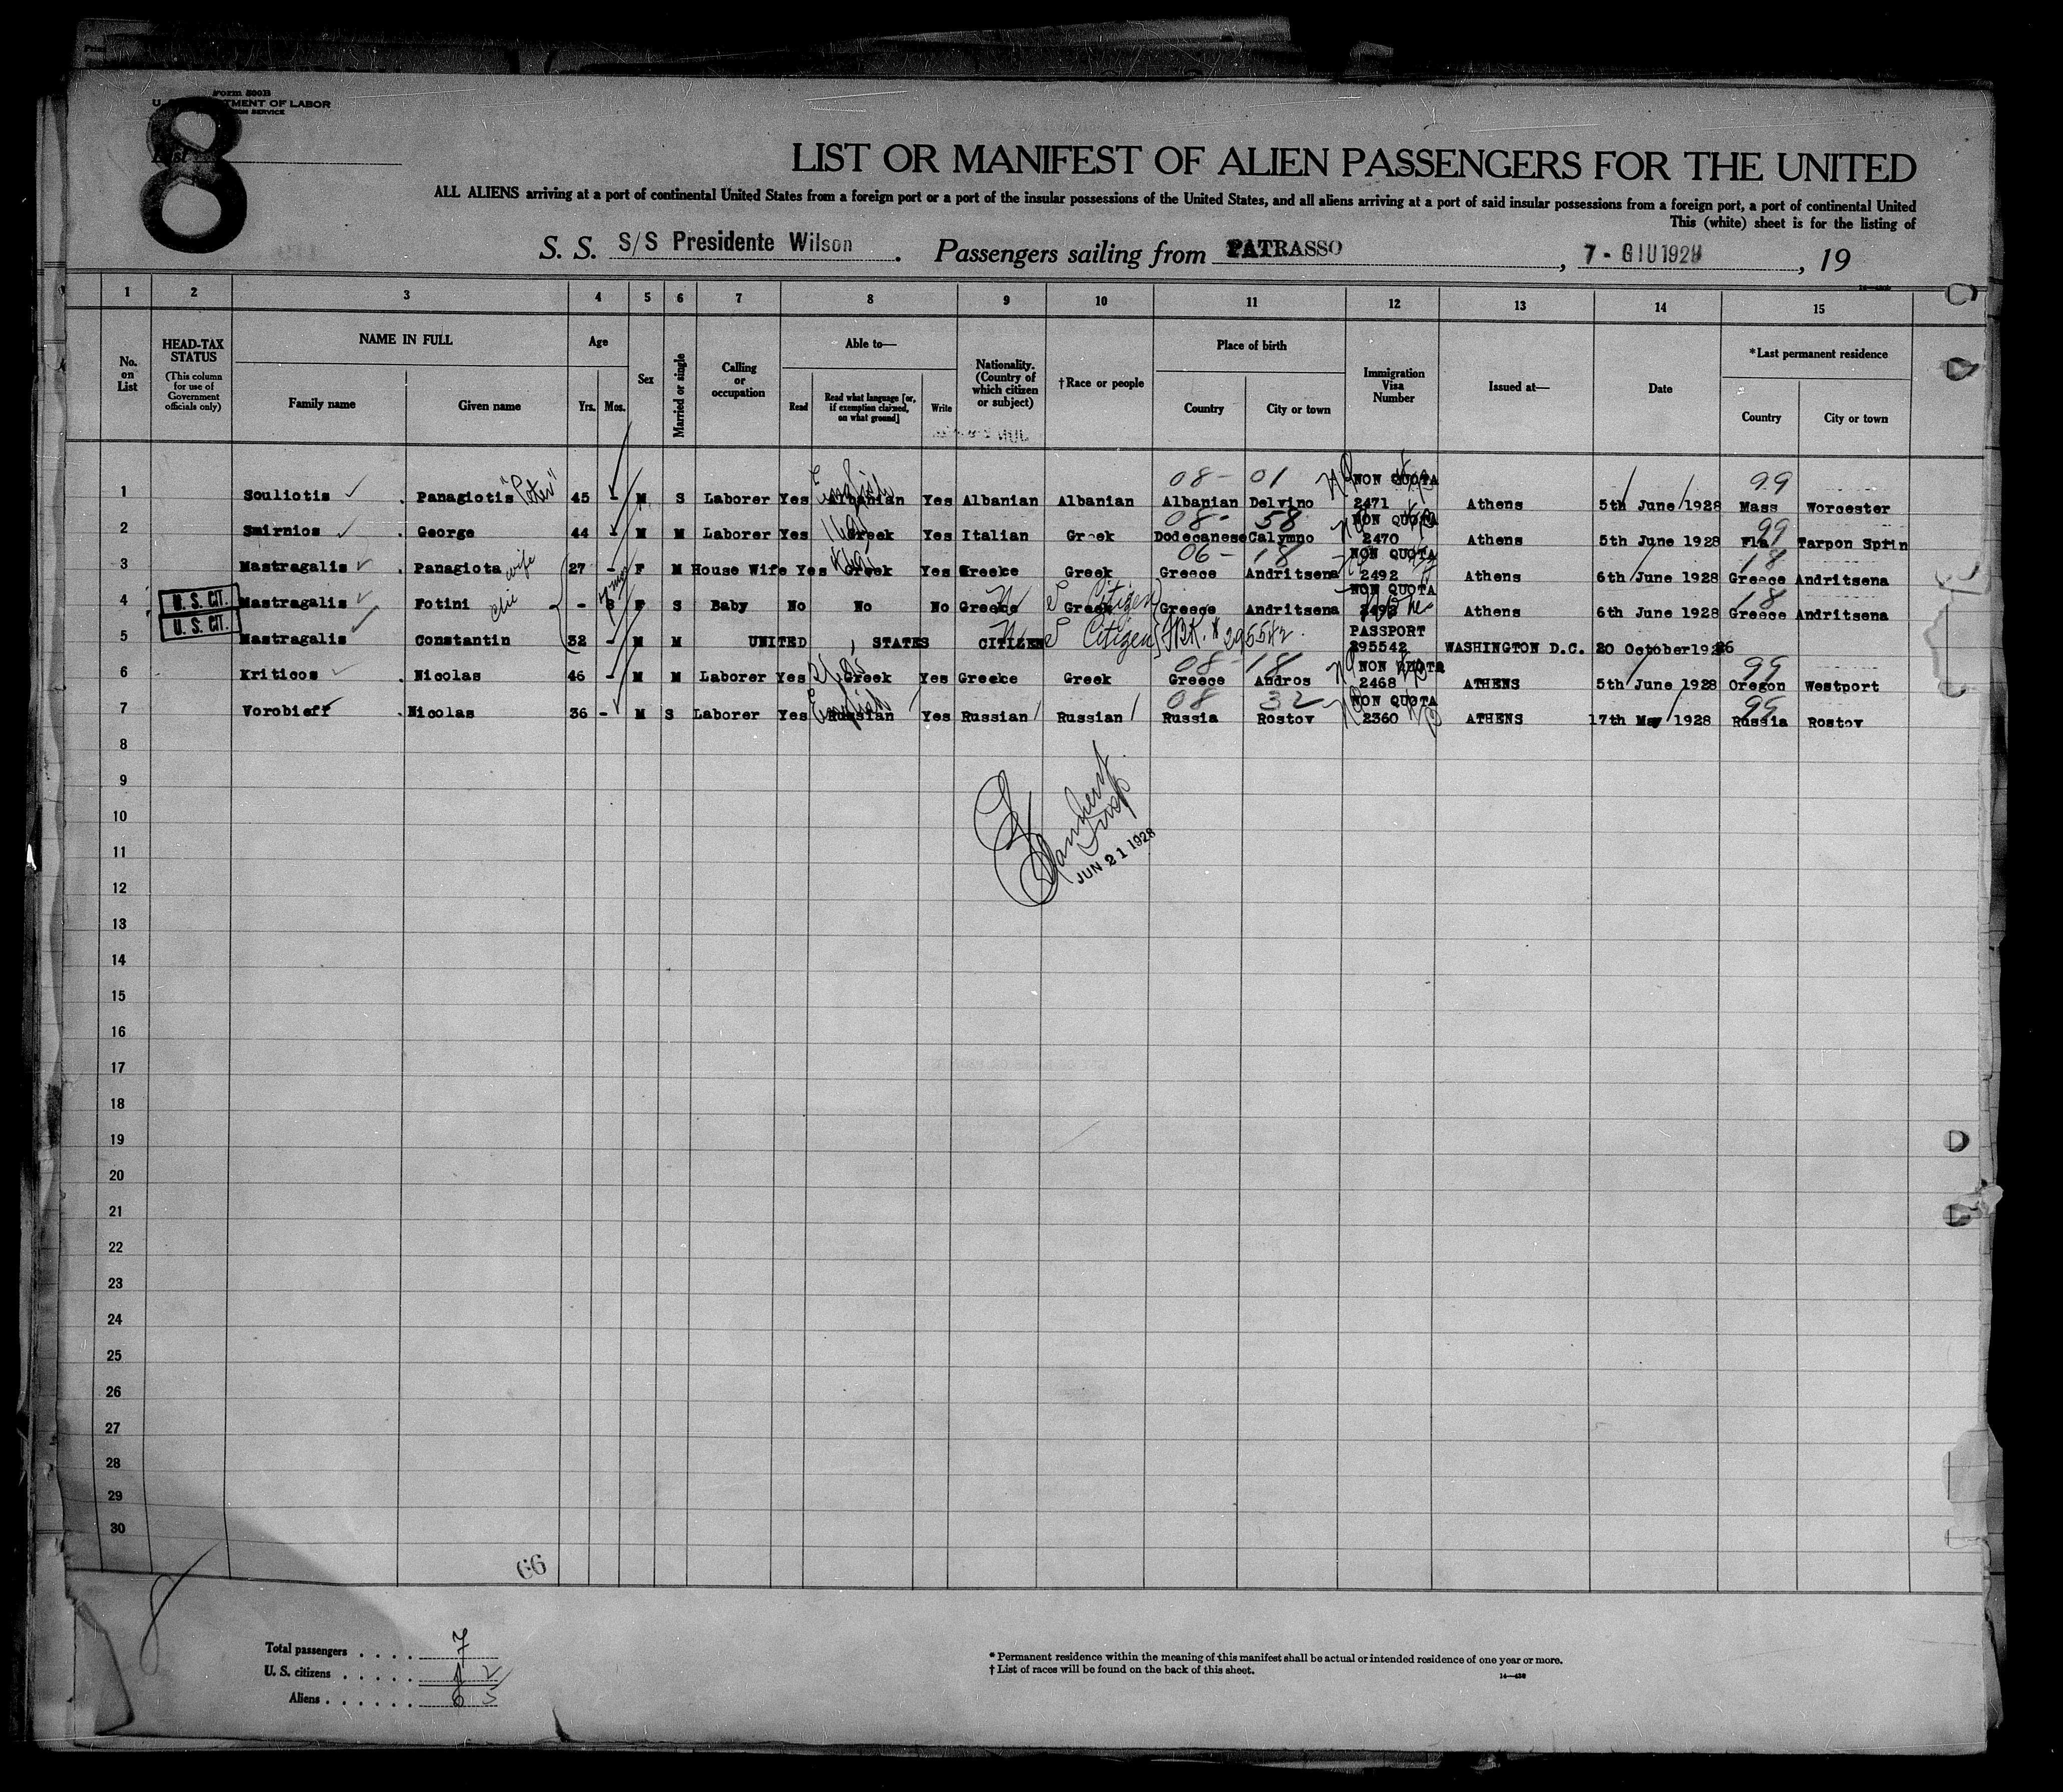 Form 500B
U. TMENT OF LABOR
SERVICE
8
List
LIST OR MANIFEST OF ALIEN PASSENGERS FOR THE UNITED
ALL ALIENS arriving at a port of continental United States from a foreign port or a port of the insular possessions of the United States, and all aliens arriving at a port of said insular possessions from a foreign port, a port of continental United
This (white) sheet is for the listing of
S. S. S/S Presidente Wilson . Passengers sailing from PATRASSO , 7 - GIU 1928 , 19
1 2 3 4 5 6 7 8 9 10 11 12 13 14 15
No. on List
HEAD-TAX STATUS
(This column for use of Government officials only)
NAME IN FULL
Family name Given name
Age
Yrs. Mos.
Sex
Married or single
Calling or occupation
Able to—
Read Read what language [or, if exemption claimed, on what ground] Write
Nationality. (Country of which citizen or subject)
†Race or people
Place of birth
Country City or town
Immigration Visa Number
Issued at—
Date
*Last permanent residence
Country City or town
08- 01 NON QUOTA 99
1 Souliotis Panagiotis "Peter" 45 - M S Laborer Yes English Albanian Yes Albanian Albanian Albanian Delvino 2471 Athens 5th June 1928 Mass Worcester
08- 58 NON QUOTA 99
2 Smirnios George 44 - M M Laborer Yes Greek Yes Italian Greek Dodecanese Calymno 2470 Athens 5th June 1928 Fla Tarpon Sprin
06- 18 NON QUOTA 18
3 Mastragalis Panagiota wife 27 - F M House Wife Yes Greek Yes Greeke Greek Greece Andritsena 2492 Athens 6th June 1928 Greece Andritsena
NON QUOTA 18
4 U. S. CIT. Mastragalis Fotini - 8 F S Baby No No No Greeke Greek Citizen Greece Andritsena 2493 Athens 6th June 1928 Greece Andritsena
PASSPORT
5 U. S. CIT. Mastragalis Constantin 32 - M M UNITED , STATES CITIZEN Citizen 295542. 295542 WASHINGTON D.C. 20 October 1926
08- 18 NON QUOTA 99
6 Kriticos Nicolas 46 - M M Laborer Yes Greek Yes Greeke Greek Greece Andros 2468 ATHENS 5th June 1928 Oregon Westport
08 32 NON QUOTA 99
7 Vorobieff Nicolas 36 - M S Laborer Yes English Russian Yes Russian Russian Russia Rostov 2360 ATHENS 17th May 1928 Russia Rostov
8
9
10
11
JUN 21 1928
12
13
14
15
16
17
18
19
20
21
22
23
24
25
26
27
28
29
30
66
8
Total passengers . . . . 7
U. S. citizens . . . . . 1 2
Aliens . . . . . . 6 5
* Permanent residence within the meaning of this manifest shall be actual or intended residence of one year or more.
† List of races will be found on the back of this sheet.
14—430